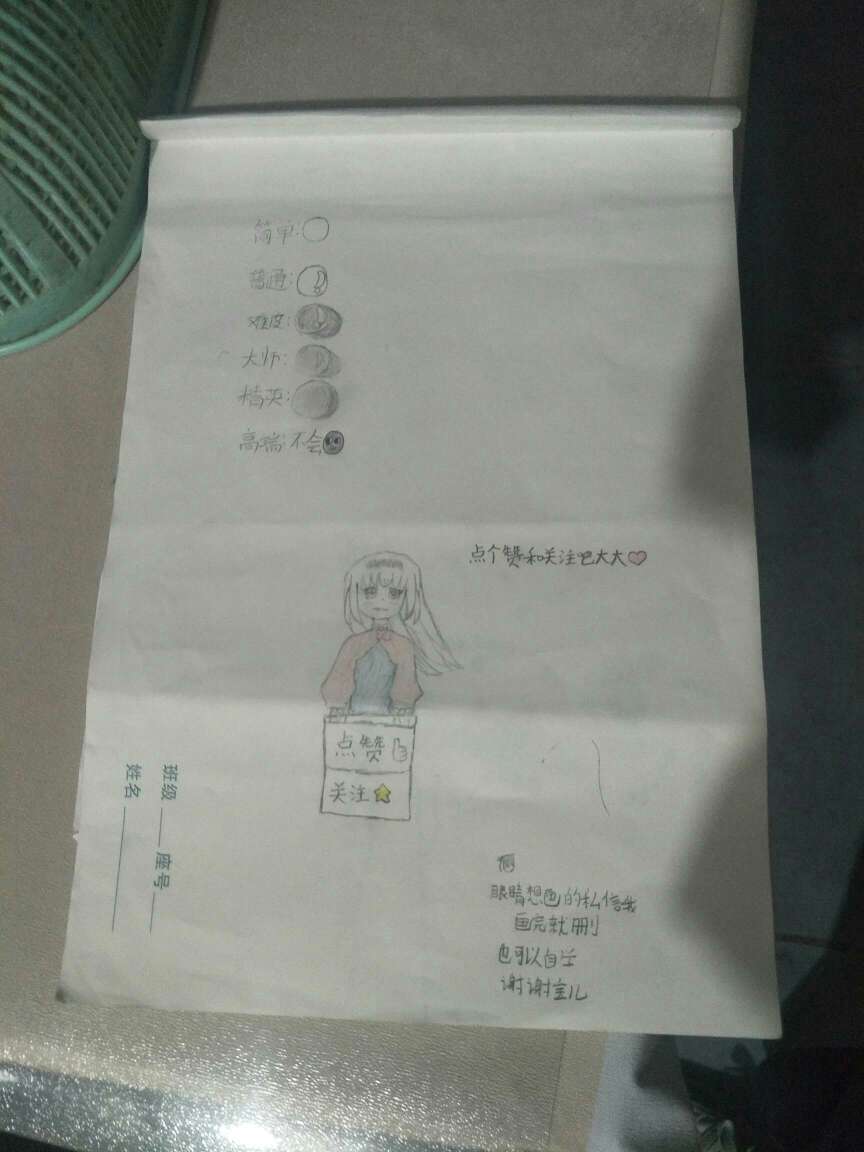 简单:
普通:
难度:
大师:
精英:
高端:不会
点个赞和关注吧大大
点赞
关注
班级 座号
姓名
眼睛想色的私信我
画完就删
也可以自学
谢谢宝儿